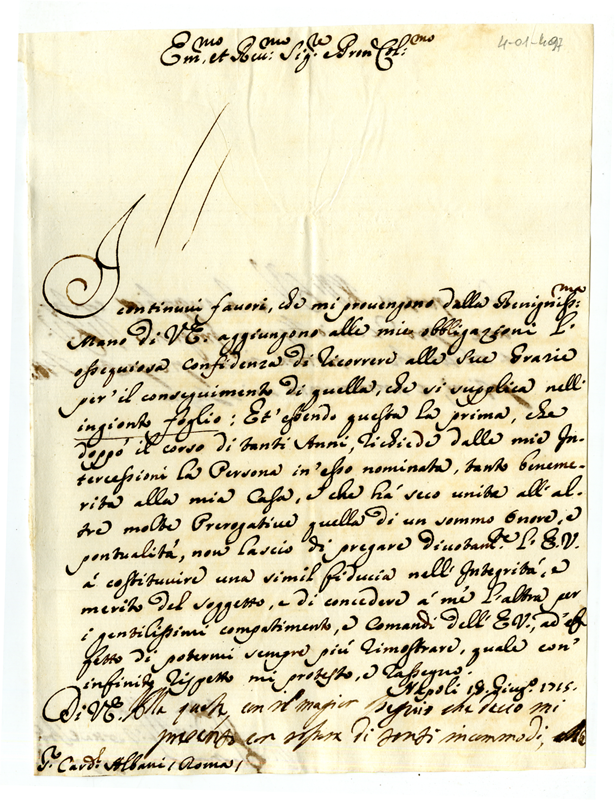 4-01-497
Em.mo et Reu.mo Sig.re Pron Col.mo
I continui fauori, che mi prouengono dalla Benigniss.ma
Mano di V.E. aggiungono alle mie obbligazioni l'
ossequiosa confidenza di ricorrere alle Sue Grazie
per il conseguimento di quella, che si supplica nell'
ingionto foglio; Et essendo questa la prima, che
doppo il corso di tanti Anni, richiede dalle mie In-
tercessioni la Persona in esso nominata, tanto beneme-
rita alla mia Casa, e che há seco unite all' al-
tre molte Prerogatiue quella di un sommo Onore, e
pontualitá, non lascio di pregare diuotam.te l' E.V.
á costituire una simil fiducia nell' Integritá, e
merito del soggetto, e di concedere á me l'altra per
i gentilissimi compatimento, e Comandi dell' E.V., ad ef-
fetto di potermi sempre piú rimostrare, quale con
infinito rispetto mi protesto, e rassegno.
Napoli 18 Giug.o 1715.
Di V.E. alla quale con il magior che
presenti con di tanti incommodi,
Card.l Albani (Roma)